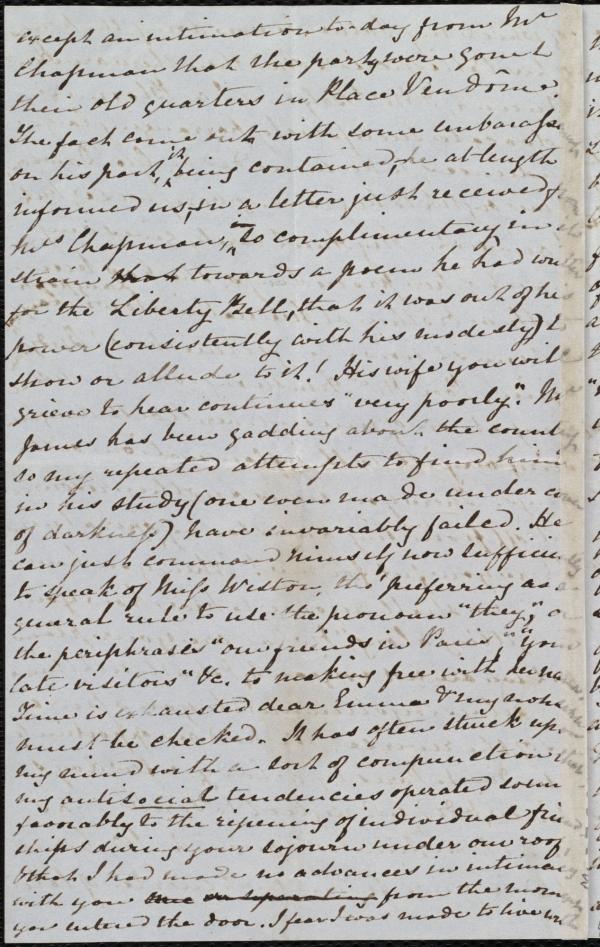 except an intimation to-day from Mr
Chapman that the party were gone t
their old quarters in Place Vendôme.
The fact came out with some embarass
on his part, it being contained, he at length
informed us, in a letter just received f
Mrs Chapman, in so complimentary in
strain that towards a poem he had wri
for the Liberty Bell, that it was out of his
power (consistently with his modesty) t
show or allude to it! His wife you will
grieve to hear continues "very poorly". Mr
James has been gadding about the count
so my repeated attempts to find him
in his study (one even made under cover
of darkness) have invariably failed. He
can just command himself now sufficien
to speak of Miss Weston, tho' preferring as a
general rule to use the pronoun "they," o
the periphrases "our friends in Paris," "your
late visitors" &c. to making free with her na
Time is exhausted dear Emma & my nons
must be checked. It has often stuck upo
my mind with a sort of compunction
my antisocial tendencies operated som
favorably to the ripening of individual frie
ships during your sojourn under our roof
& that I had made no advances in intimac
with you once on separating from the mom
you entered the door. I fear I was made to live